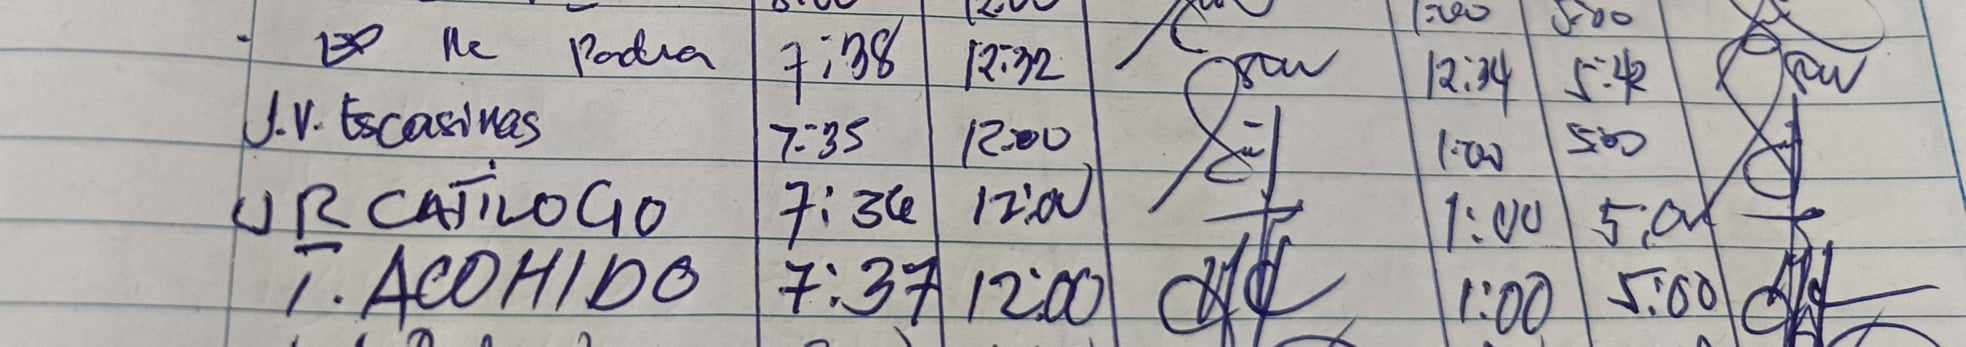 Padua 7:38 12:32 12:34 5:42
J.V. Escasinas 7:35 12:00 1:00 5:00
JR CATILOGO 7:36 12:00 1:00 5:00
T. ACOHIDO 7:37 12:00 1:00 5:00